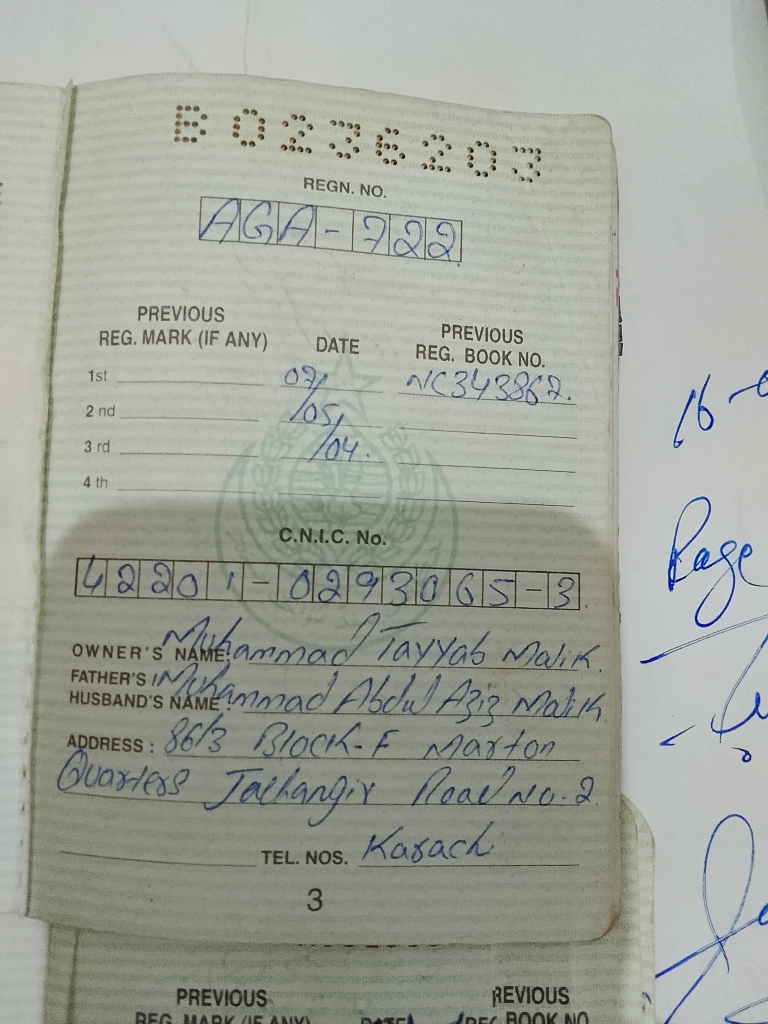 B0236203
REGN. NO.
AGA-722
PREVIOUS REG. MARK (IF ANY) DATE PREVIOUS REG. BOOK NO.
1st 07/ NC343867.
2 nd /05/
3 rd /04.
4 th
C.N.I.C. No.
42201-0293065-3
OWNER'S NAME: Muhammad Tayyab Malik.
FATHER'S /
HUSBAND'S NAME: Muhammad Abdul Aziz Malik
ADDRESS: 86/3 Block-F Marton
Quarters Jaehangir Road No-2.
TEL. NOS. Karachi
3
PREVIOUS REVIOUS
REG. MARK (IF ANY) DATE REG. BOOK NO
16-
Page